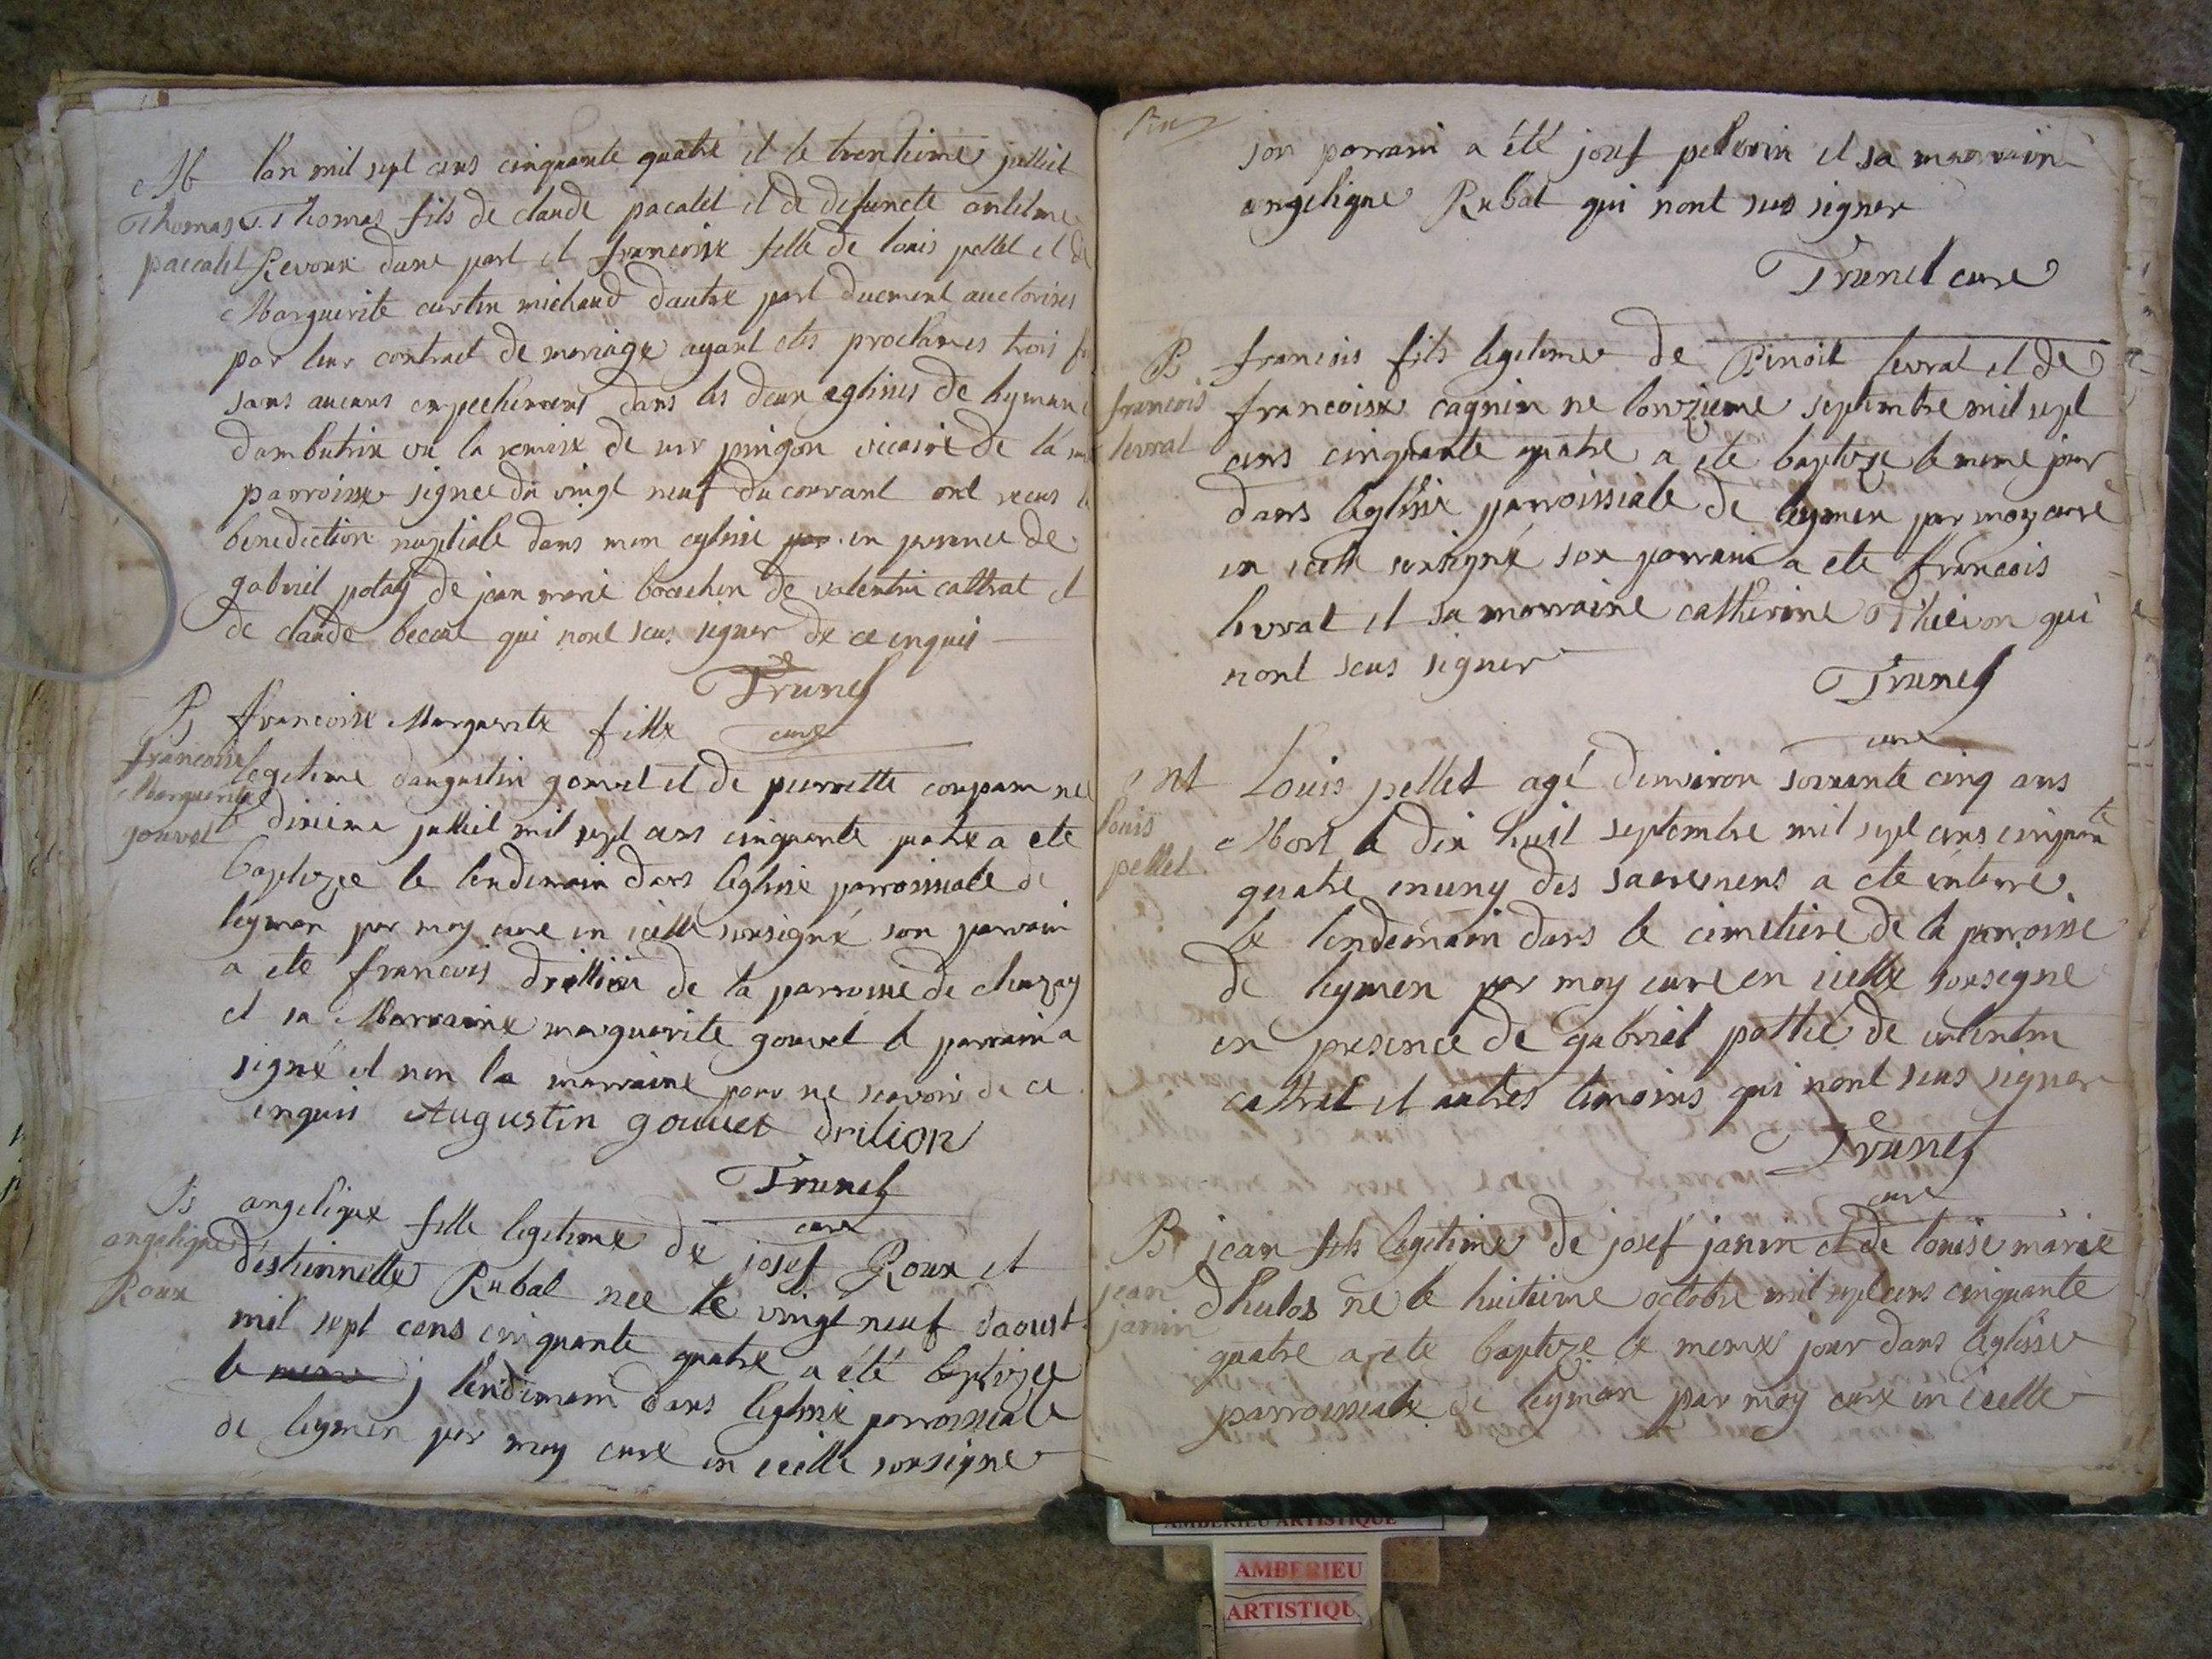 M
Thomas
paccalet
lan mil sept cens cinquante quatre et le trentieme julliet
Thomas fils de claude pacalet et de defuncte antelme
Revoux dune part et francoise fille de louis pellet et de
Marguerite curtin michaud dautre part duement auctorises
par leur contract de mariage ayant etes proclames trois
sans aucuns empechement dans les deux eglises de leymen
dambutrix vu la remise de mr pingon vicaire de la
parroisse signee du vingt neuf du courant ont recus
benediction nuptiale dans mon eglise par en presence de
gabriel potay de jean marie bocchon de valentin cattrat et
de claude beccat qui nont scus signer de ce enquis
Trunel
cure
B
francoise
Marguerite
gouvet
francoise Marguerite fille
legetime daugustin gouvet et de pierrette compare nee
le dixieme julliet mil sept cens cinquante quatre a ete
baptizee le lendemain dans leglise parroissiale de
leymen par moy cure en icelle sousigné son parrain
a ete francois drillion de la parroisse de chazay
et sa Marraine marguerite gouvet le parrain a
signé et non la marraine pour ne scavoir de ce
enquis Augustin gouvet drilion
Trunel
cure
B
angelique
Roux
angelique fille legetime de josef Roux et
destiennette Rubat nee le vingt neuf daoust
mil sept cens cinquante quatre a été baptizee
le meme j lendemain dans leglise parroissiale
de leymen par moy cure en icelle sousigne
son parrain a été josef pellevin et sa marrain
angelique Rubat qui nont scus signer
Trunel cure
B
francois
levrat
francois fils legetime de Binoit levrat et de
francoise cagnin ne lonzieme septembre mil sept
cens cinquante quatre a ete baptize le meme jour
dans leglise parroissiale de leymen par moy curé
en icelle sousigné son parrain a ete francois
levrat et sa marraine catherine Thievon qui
nont scus signer
Trunel
cure
nt
louis
pellet
Louis pellet agé denviron soixante cinq ans
Mort le dix huit septembre mil sept cens cinquante
quatre muny des sacremens a ete enterré
le lendemain dans le cimetiere de la parroisse
de leymen par moy cure en icelle sousigne
en presence de gabriel pottié de valentin
cattrat et autres temoins qui nont scus signer
Trunel
cure
B
jean
janin
jean fils legetime de josef janin et de louise marie
dhulos né le huitieme octobre mil sept cens cinquante
quatre a ete baptize le meme jour dans leglise
parroissiale de leymen par moy cure en icelle
AMBERIEU ARTISTIQUE
AMBERIEU
ARTISTIQU